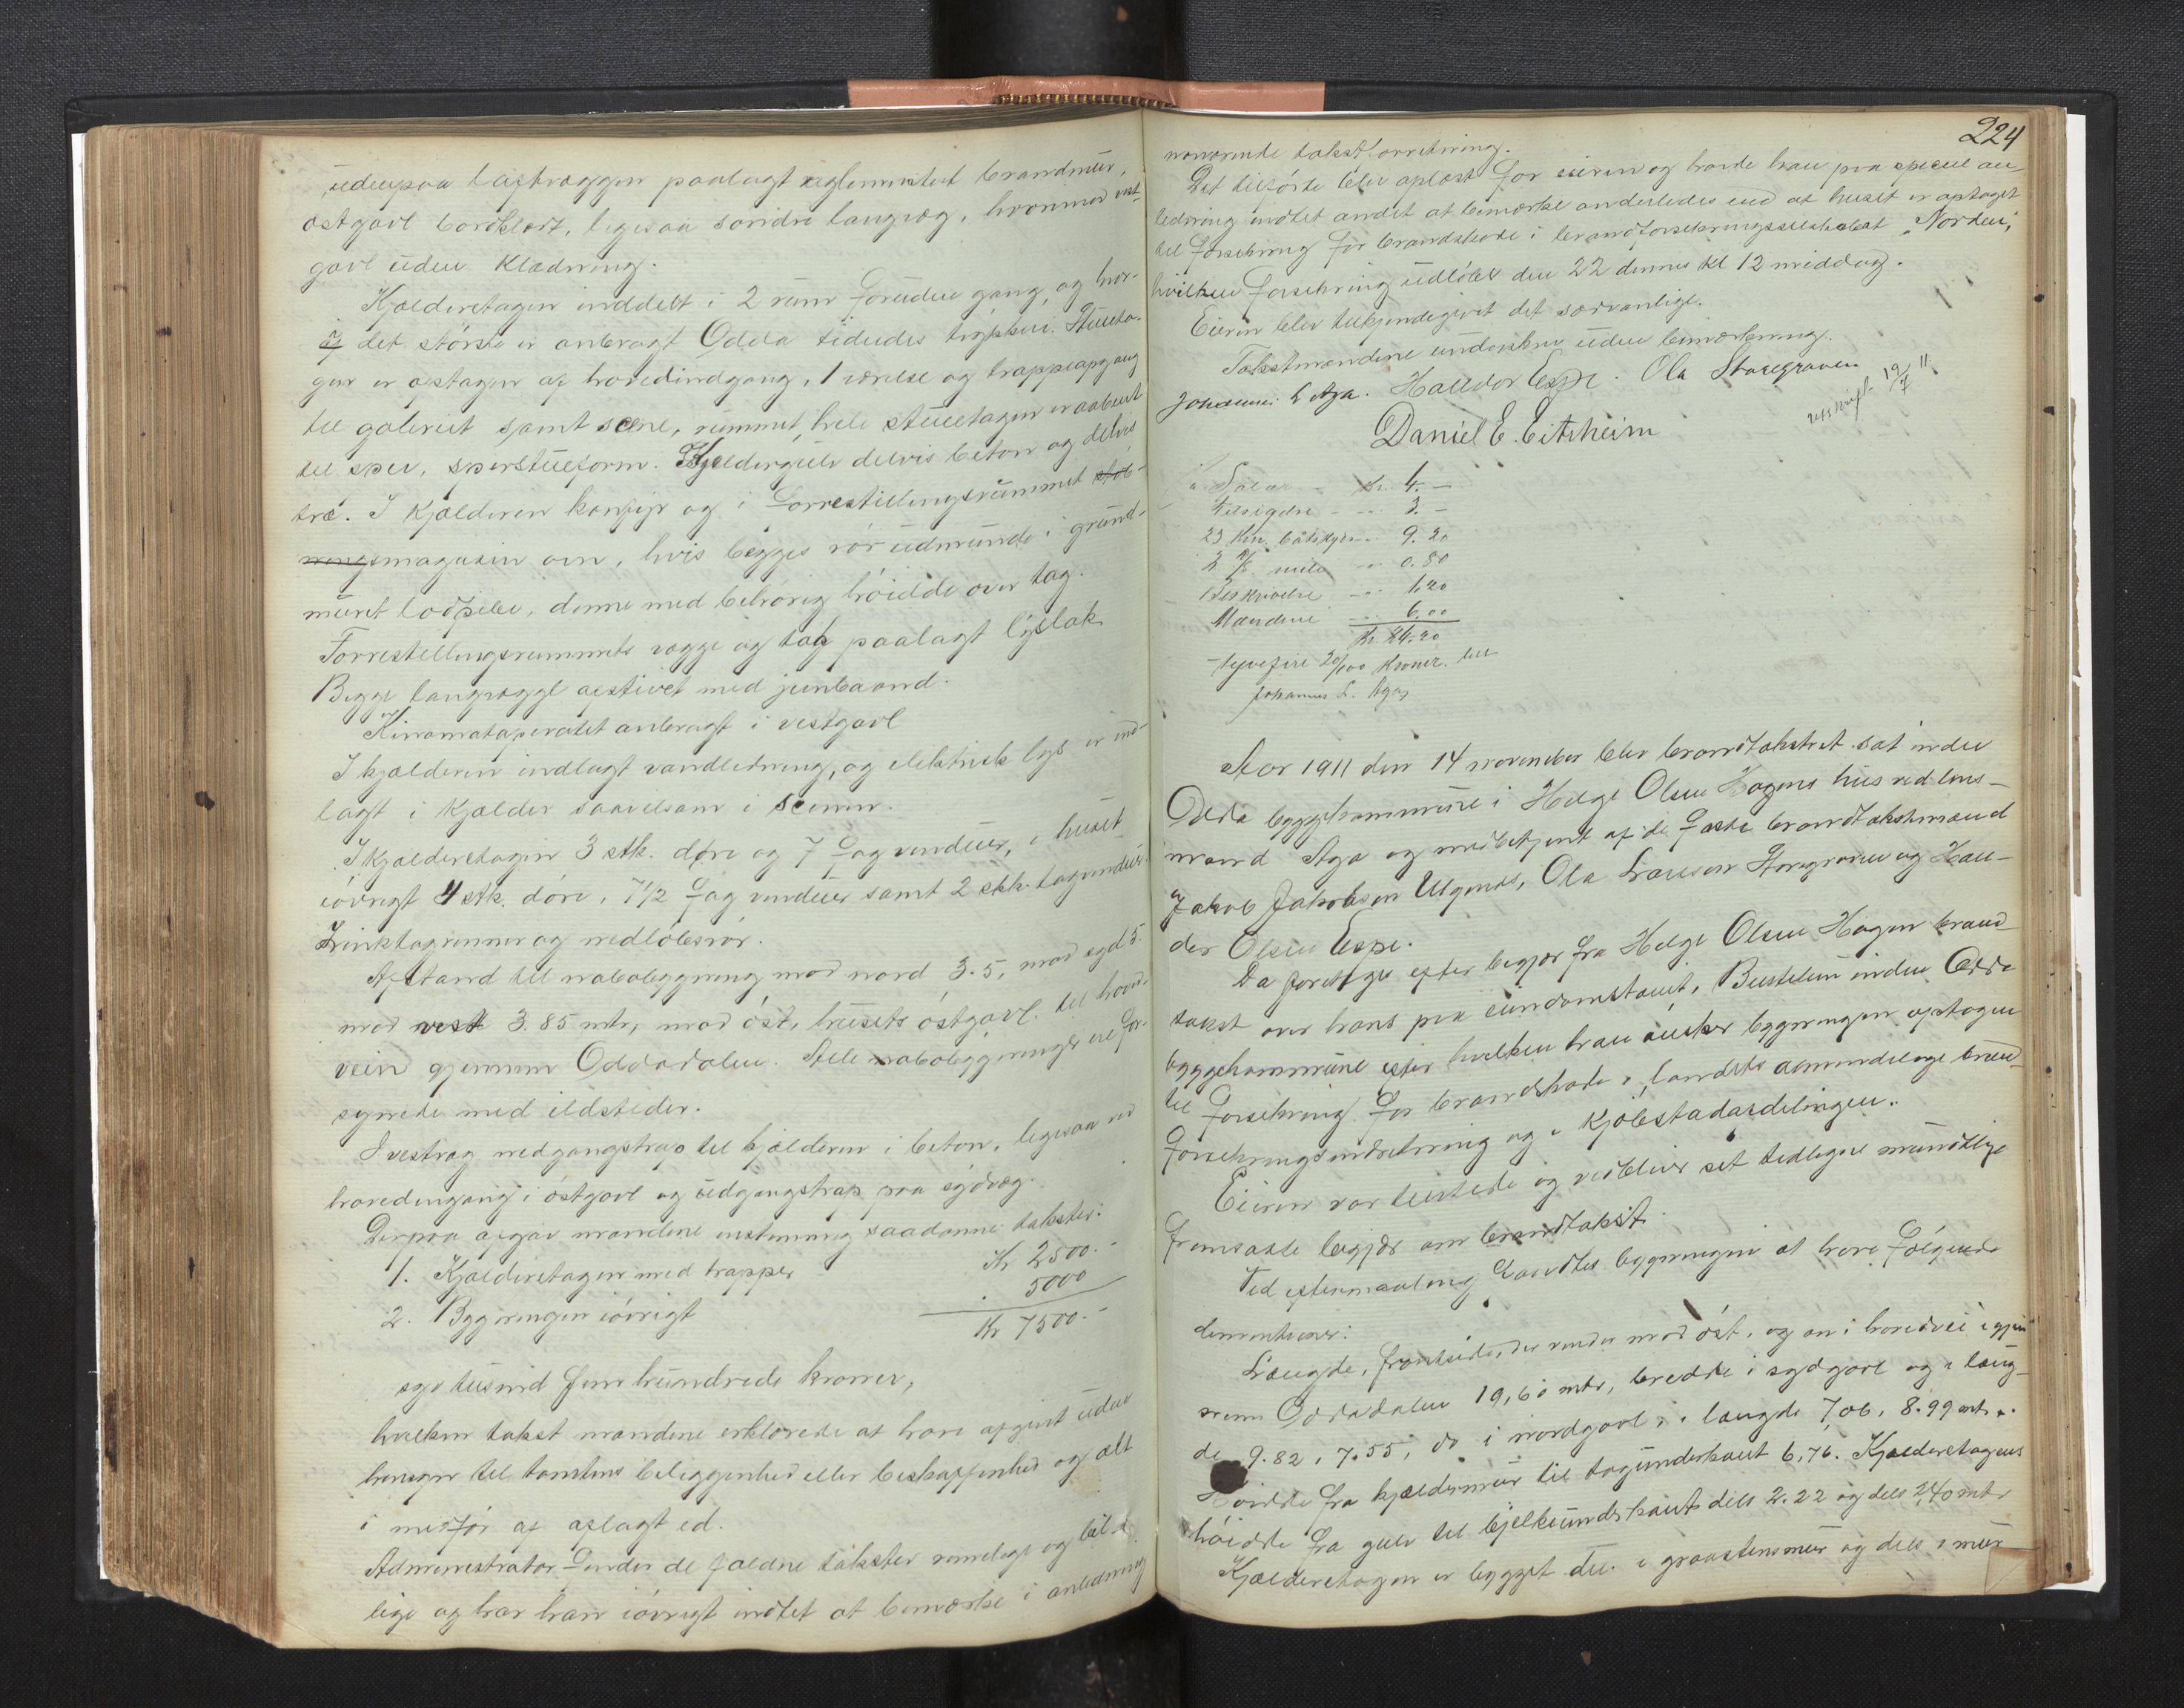 udenpaa laftvæggen paalagt reglementert brandmur,
østgavl bordklædt, ligesaa søndre langvæg, hvorimod vest-
gavl uden klædning.
Kjælderetagen inddelt i 2 rum foruden gang, og hvor-
af det største er anbragt Odda tidendes trykkeri. Stueeta-
gen er optagen af hovedindgang, 1 værelse og trappeopgang
til galeriet samt scene, rummet, hele stueetagen er aabent
til sper, sperstueform. Kjældergulv delvis beton og delvis
træ. I kjælderen komfyr og i Forrestillingsrummet støb-
ningsmagasin ovn, hvis begges rør udmunde i grund-
muret lodpibe, denne med behørig høidde over tag.
Forrestillingsrummets vægge og tag paalagt lyslak
Begge langvægge afstivet med jernbaand.
Kinomataperatet anbragt i vestgavl
I kjælderen indlagt vandledning, og elektrisk lys er ind-
lagt i kjælder saavelsom i scenen.
I kjælderetagen 3 stk. døre og 7 fag vinduer, i huset
iøvrigt 4 stk. døre, 7 1/2 fag vinduer samt 2 stk. tagvinduer.
Zinktagrenner og nedløbsrør.
Afstand til nabobygning mod nord 3.5, mod syd 5.
mod vest 3.85 mtr, mod øst, husets østgavl til hoved-
vein gjennem Oddadalen. Alle nabobygninger ere for-
synede med ildsteder.
I vestvæg nedgangstrap til kjælderen i beton, ligesaa ved
hovedingang i østgavl og udgangstrap paa sydvæg.
Derpaa afgav mændene enstemmig saadanne takster:
1. Kjælderetagen med trapper Kr 2500.-
2. Bygningen iøvrigt " 5000
Kr 7500.-
syv tusind fem hundrede kroner,
hvilken takst mændene erklærede at have afgivet uden
hensyn til tomtens beliggenhed eller beskaffenhed og alt
i medfør af aflagt ed.
Administrator finder de faldne takster rimelige og bil-
lige og har han iøvrigt indtet at bemærke i anledning
224
nærværende takstforretning.
Det tilførte blev oplæst for eieren og havde han paa speciel an-
ledning indtet andet at bemærke anderledes end at huset er optaget
til forsikring for brandskade i brandforsikringsselskabet "Norden",
hvilken forsikring udløber den 22 dennes kl 12 middag.
Eieren blev tilkjendegivet det sædvanlige.
Takstmændene underskrev uden bemærkning.
Johannes L Aga. Halldor Espe. Ola Storegraven
Daniel E. Eitrheim
Kr. 4.-
Tilsigelse - " 3.-
23 Km. båtskyds " 9.20
" 0.80
Beskrivelse - " 1.20
Mændene " 6.00
Kr. 24.20
tyvefire 20/100 kroner.
Johannes L. Aga
Aar 1911 den 14 november blev brandtakstret sat inden
Odda bygghommune i Helge Olsen Hagens hus ved lens-
mand Aga og medbetjent af de faste brandtakstmænd
Jakob Jakobsen Ulgenes, Ola Larsen Storegraven og Hal-
dor Olsen Espe.
Da foretoges efter begjær fra Helge Olsen Hagen brand-
takst over hans paa eiendomstomt, inden Odda
byggekommune efter hvilken han ønsker bygningen optagen
til forsikring for brandskade i landets almindelige brand-
forsikringsindretning og i kjøbstadafdelingen.
Eieren var tilstede og vedblev sit tidligere mundtlige
fremsatte begjær om brandtakst.
Ved eftermaaling fandtes bygningen at have følgende
dimentioner:
Længde, frontside, der vender mod øst, og an i hovedvei igjen-
nem Oddadalen 19,60 mtr, bredde i sydgavl og i læng-
de 9.82, 7.55, do i nordgavl i længde 7,06, 8.99 mtr.
Høidde fra kjældermur til tagunderkant 6,76. Kjælderetagens
høidde fra gulv til bjelkeunderkant dels 2.22 og dels 2.40 mtr
Kjælderetagen er bygget dels i graastensmur og dels i mur